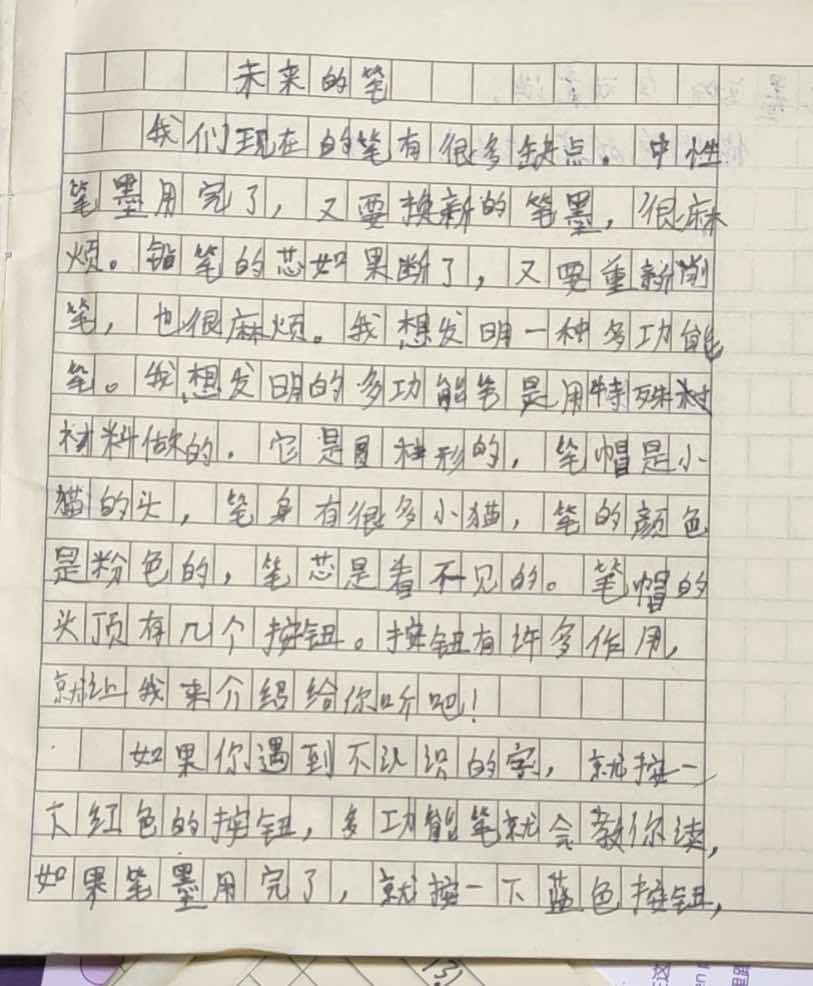 未来的笔
我们现在的笔有很多缺点。中性
笔墨用完了，又要换新的笔墨，很麻
烦。铅笔的芯如果断了，又要重新削
笔，也很麻烦。我想发明一种多功能
笔。我想发明的多功能笔是用特殊
材料做的。它是圆柱形的，笔帽是小
猫的头，笔身有很多小猫，笔的颜色
是粉色的，笔芯是看不见的。笔帽的
头顶有几个按钮。按钮有许多作用，
就让我来介绍给你听吧！
如果你遇到不认识的字，就按一
下红色的按钮，多功能笔就会教你读，
如果笔墨用完了，就按一下蓝色按钮，